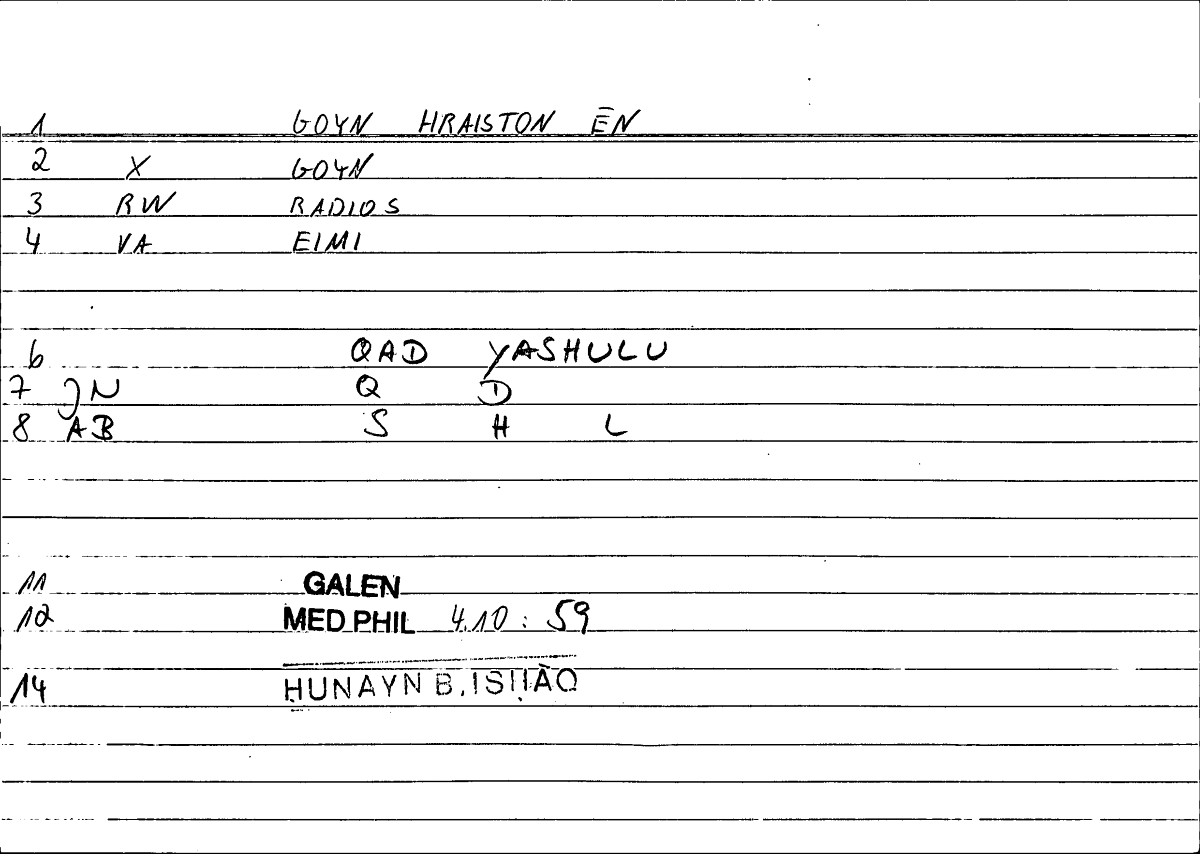 1 GOYN HRAISTON ĒN
2 X GOYN
3 RW RADIOS
4 VA EIMI
6 QAD YASHULU
7 JN Q D
8 AB S H L
11 GALEN
12 MED PHIL 4.10 : 59
14 ḤUNAYN B. ISḤĀQ